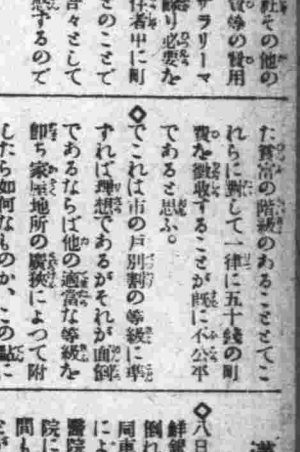 社その他の
費等の費用
サラリーマ
り必要を
住者中に町
とのことで
々として
するので
た貧富の階級のあることとてこ
れらに對して一律に五十錢の町
費を徴收することが既に不公平
であると思ふ。
◇でこれは市の戸別割の等級に準
ずれば理想であるがそれが面倒
であるならば他の適當な等級を
卽ち家屋地所の廣狹によつて附
したら如何なものか、この點に
◇八日
鮮銀
倒れ
同車
によ
醫院
院に
間も